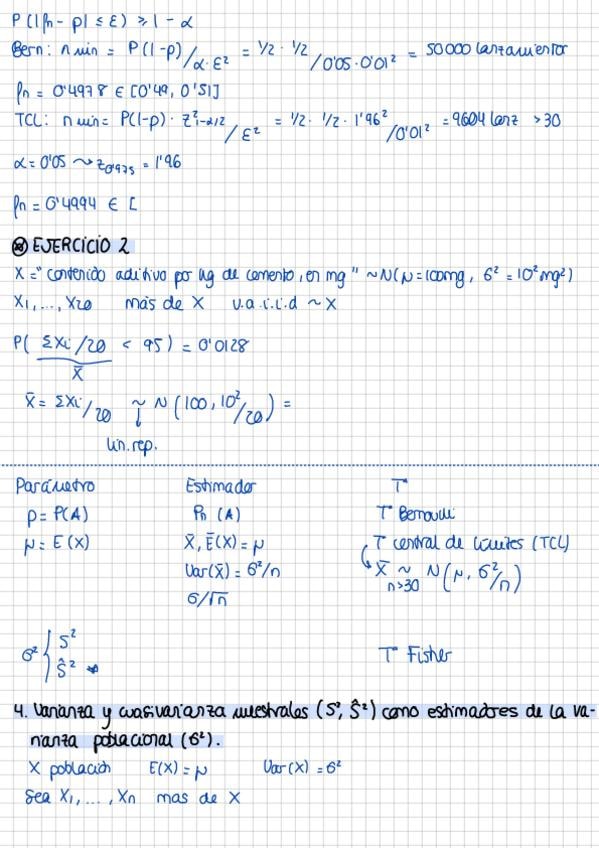 P(|fn - p| ≤ ε) ≥ 1 - α
Bern: n min = P(1-p)/α·ε² = 1/2 · 1/2 / 0'05·0'01² = 50000 lanzamientos
fn = 0'4978 ∈ [0'49, 0'51]
TCL: n min = P(1-p) · z²1-α/2 / ε² = 1/2 · 1/2 · 1'96² / 0'01² = 9604 lanz > 30
α = 0'05 ⤳ z0'975 = 1'96
fn = 0'4994 ∈ [
⊛ EJERCICIO 2
X = "contenido aditivo por kg de cemento, en mg" ~ N(μ = 100mg, σ² = 10² mg²)
X1, ..., X20 mas de X v.a.i.i.d ~ X
P( ΣXi/20 < 95) = 0'0128
X̄
X̄ = ΣXi/20 ~ N(100, 10²/20) =
lin. rep.
Parámetro Estimador Tª
p = P(A) Pn (A) Tª Bernoulli
μ = E(X) X̄, E(X̄) = μ Tª central de límites (TCL)
Var(X̄) = σ²/n X̄ ~ N(μ, σ²/n)
n>30
σ/√n
σ² { S²
Ŝ² Tª Fisher
4. Varianza y cuasivarianza muestrales (S², Ŝ²) como estimadores de la va-
rianza poblacional (σ²).
X población E(X) = μ Var(X) = σ²
Sea X1, ..., Xn mas de X